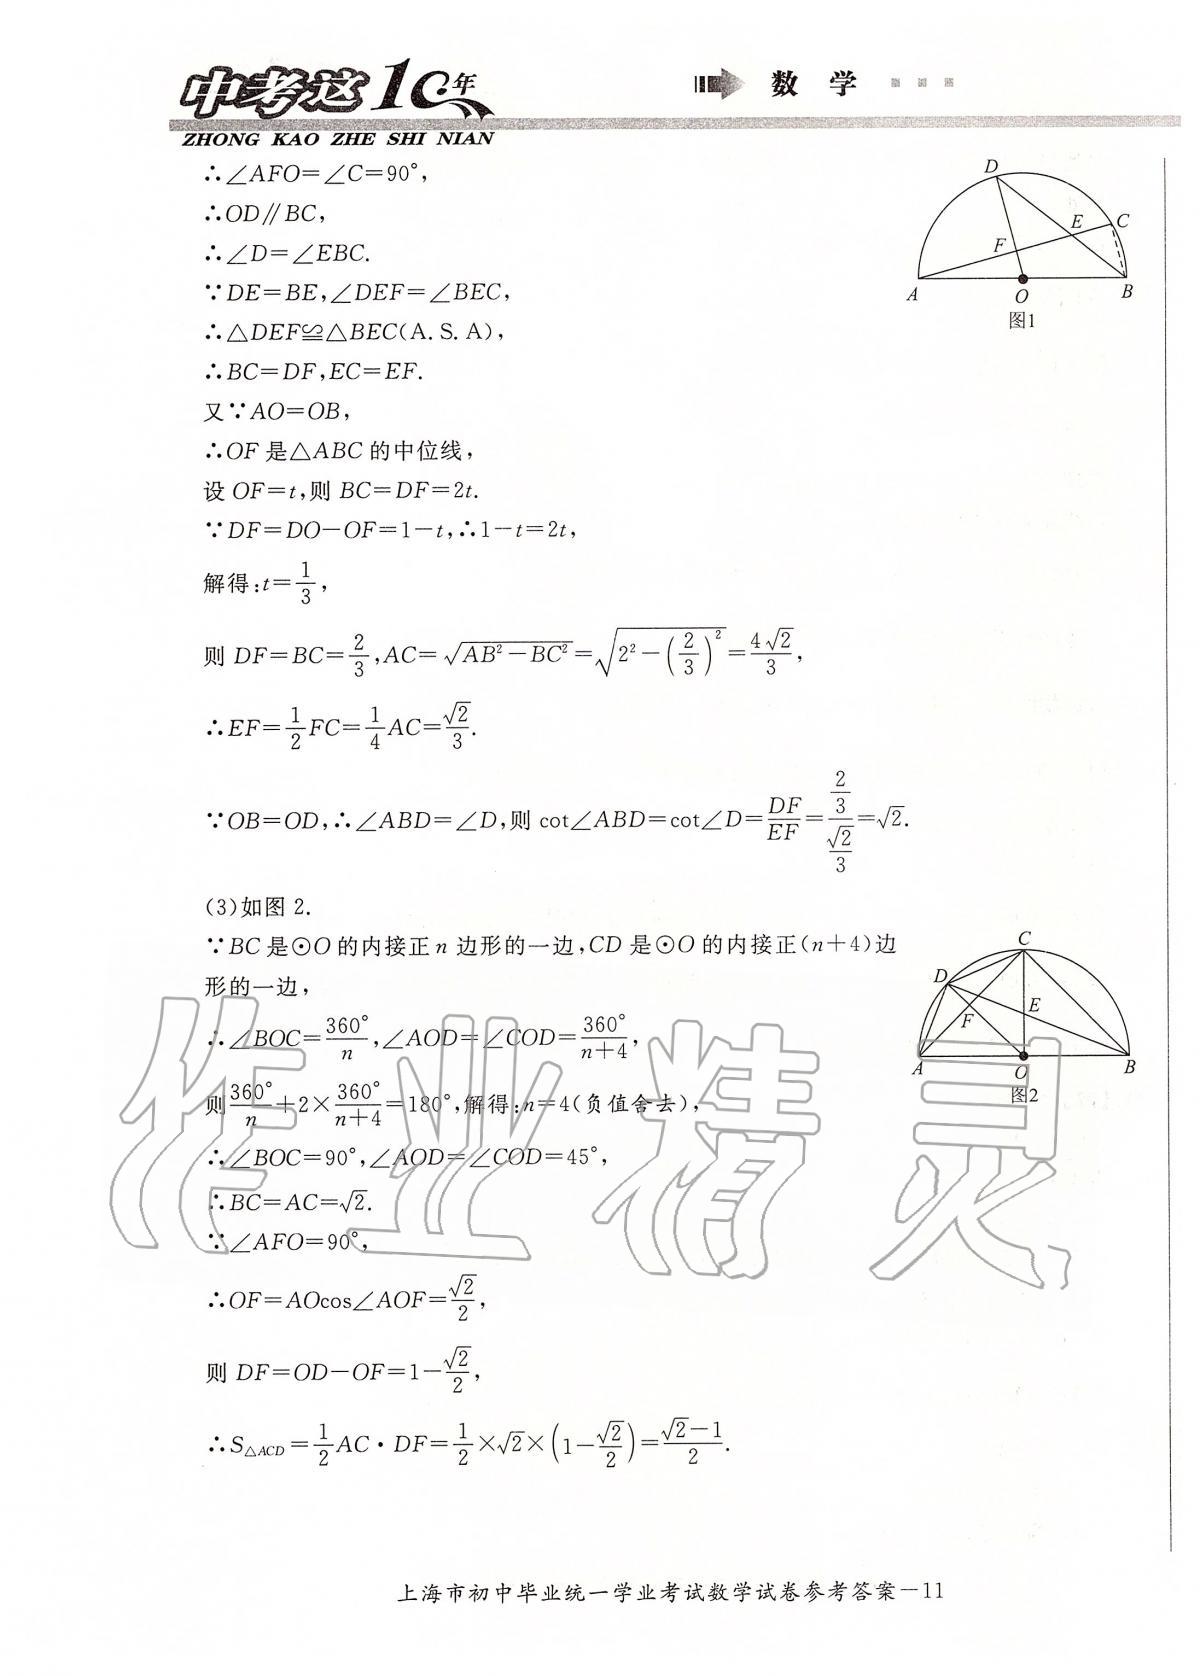 中考这10年
ZHONG KAO ZHE SHI NIAN
数 学
∴∠AFO=∠C=90°,
∴OD∥BC,
∴∠D=∠EBC.
∵DE=BE,∠DEF=∠BEC,
∴△DEF≌△BEC(A.S.A),
∴BC=DF,EC=EF.
又∵AO=OB,
∴OF是△ABC的中位线,
设OF=t,则BC=DF=2t.
∵DF=DO-OF=1-t,∴1-t=2t,
解得:t=1/3,
则DF=BC=2/3,AC=√(AB²-BC²)=√(2²-(2/3)²)=4√2/3,
∴EF=1/2FC=1/4AC=√2/3.
∵OB=OD,∴∠ABD=∠D,则cot∠ABD=cot∠D=DF/EF=(2/3)/(√2/3)=√2.
D
E
C
F
A
O
B
图1
(3)如图2.
∵BC是⊙O的内接正n边形的一边,CD是⊙O的内接正(n+4)边
形的一边,
∴∠BOC=360°/n,∠AOD=∠COD=360°/(n+4),
则360°/n+2×360°/(n+4)=180°,解得:n=4(负值舍去),
∴∠BOC=90°,∠AOD=∠COD=45°,
∴BC=AC=√2.
∵∠AFO=90°,
∴OF=AOcos∠AOF=√2/2,
则DF=OD-OF=1-√2/2,
∴S△ACD=1/2AC·DF=1/2×√2×(1-√2/2)=(√2-1)/2.
C
D
E
F
A
O
B
图2
作业精灵
上海市初中毕业统一学业考试数学试卷参考答案-11